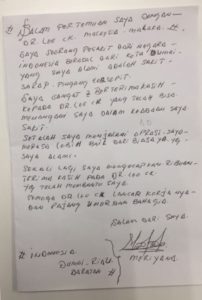 SALAM PERTEMUAN SAYA DENGAN
DR LEE CK. MALAYSIA - MAHARA
SAYA SEORANG PESAKIT DARI NEGARA -
INDONESIA BERASAL DARI KOTA DUMAI -
YANG SAYA ALAMI ADALAH SAKIT -
SARAF PINGANG KEJEPIT.
SAYA SANGAT 2 BERTERIMAKASIH
KEPADA DR LEE CK YANG TELAH BISA
MENANGANI SAYA DALAM KEADAAN SAYA
SAKIT.
SETELAH SAYA MENJALANI OPRASI - SAYA
MERASA LEBIH BAIK DARI BIASA YG
SAYA ALAMI.
SEKALI LAGI SAYA MENGUCAPKAN RIBUAN -
TERIMA KASIH PADA DR LEE CK
YG TELAH MEMBANTU SAYA
SEMOGA DR LEE CK LANCAR KERJA NYA -
DAN PAJANG UMUR DAN BAHAGIA
SALAM DARI SAYA
# INDONESIA
DUMAI - RIAU
DARATAN #